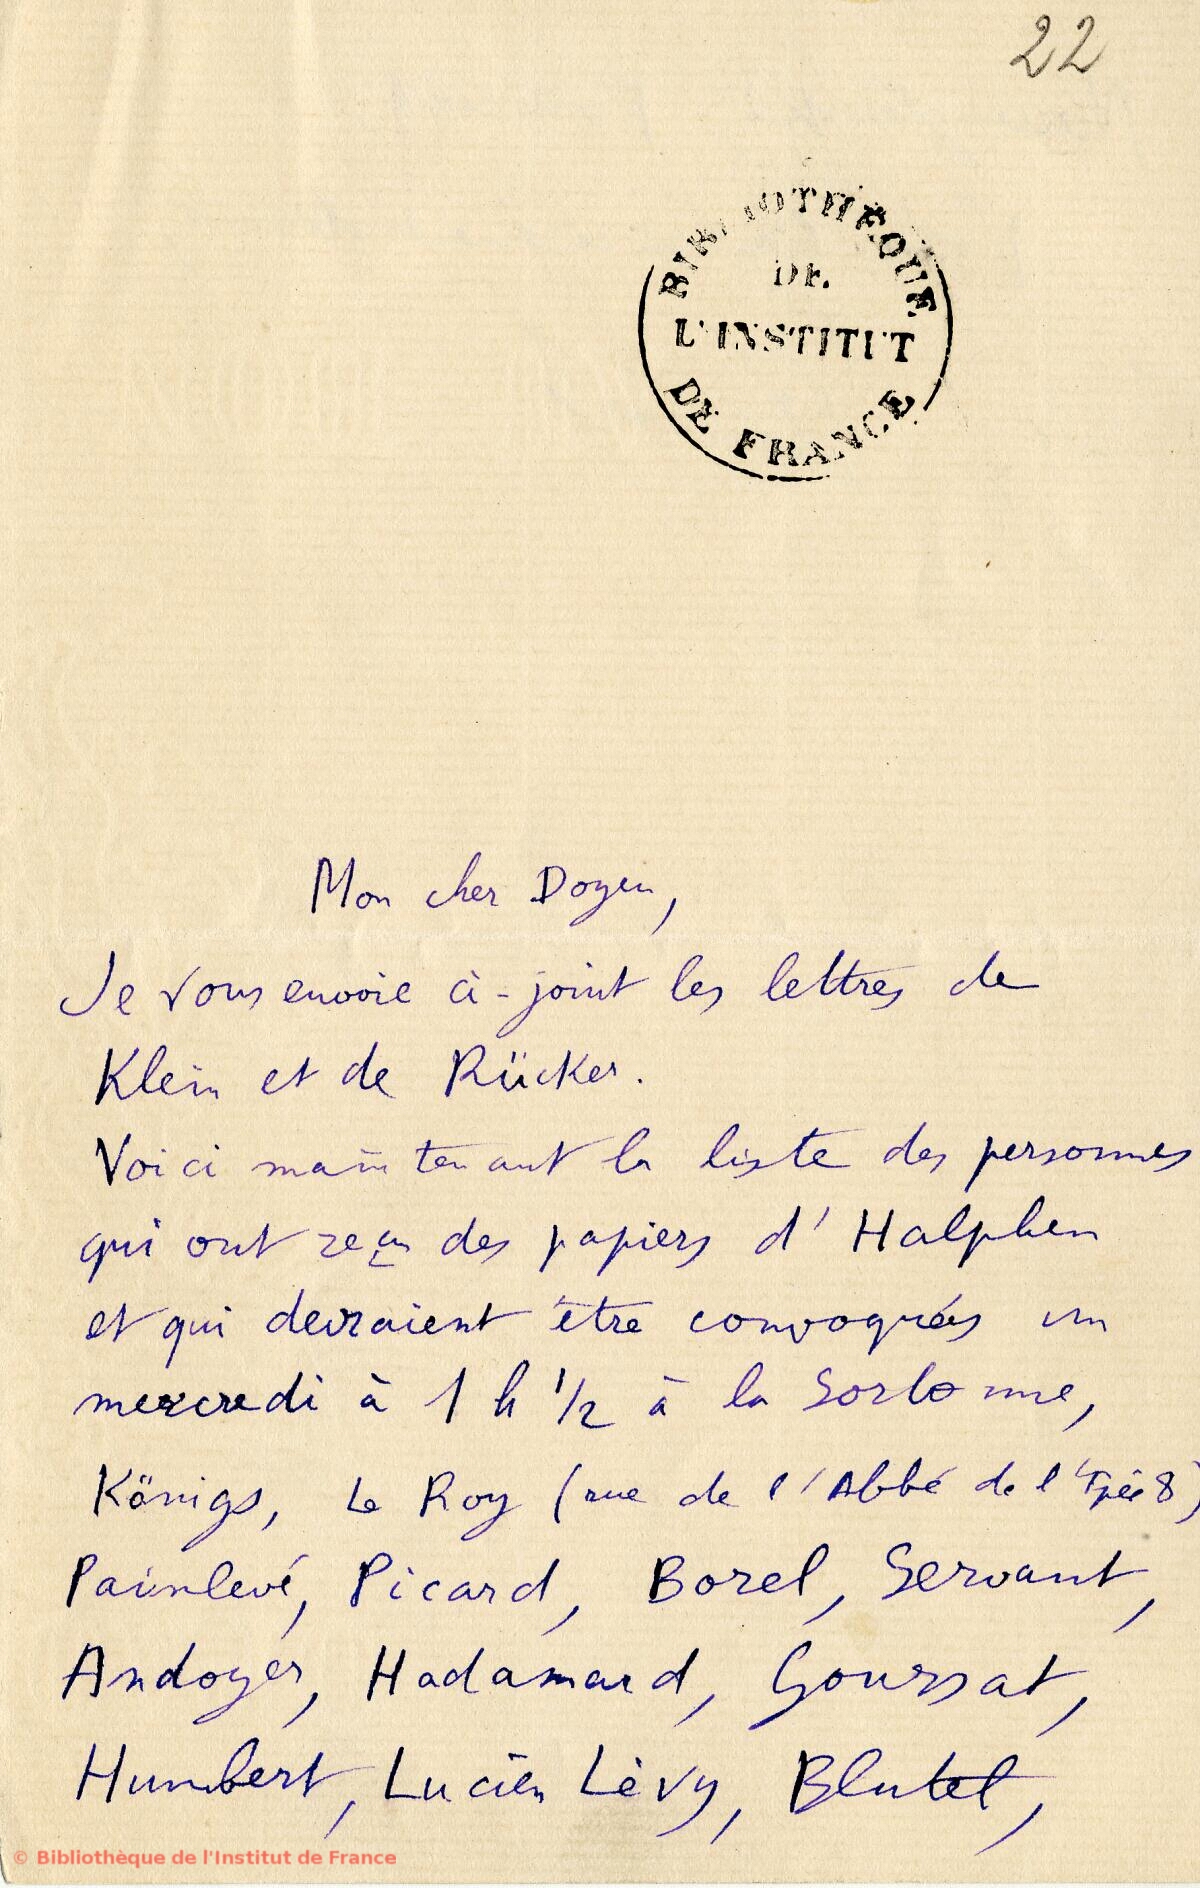 22
BIBLIOTHEQUE
DE
L'INSTITUT
DE FRANCE
Mon cher Doyen,
Je vous envoie ci-joint les lettres de
Klein et de Rücker.
Voici maintenant la liste des personnes
qui ont reçu des papiers d'Halphen
et qui devraient être convoquées un
mercredi à 1 h 1/2 à la Sorbonne,
Königs, Le Roy (rue de l'Abbé de l'Epée 8)
Painlevé, Picard, Borel, Servant,
Andoyer, Hadamard, Goursat,
Humbert, Lucien Lèvy, Blutel,
© Bibliothèque de l'Institut de France